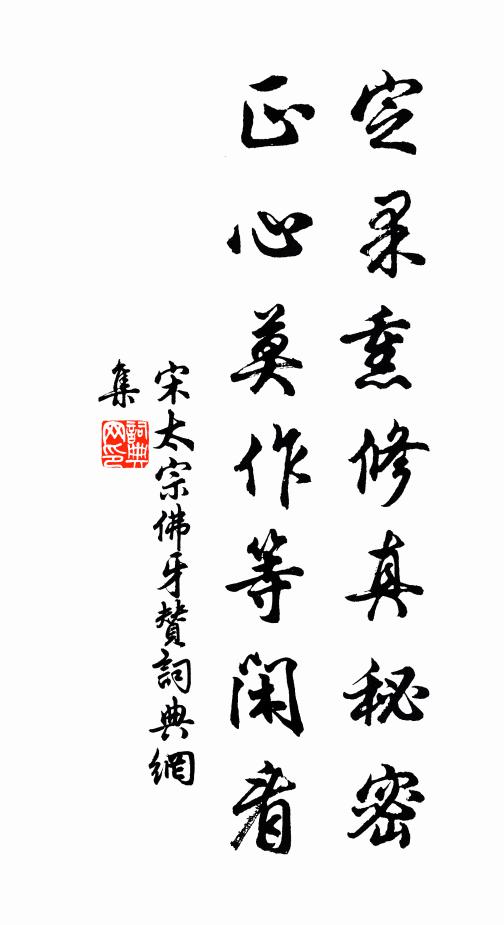 定果熏修真秘密
正心莫作等閑看
宋太宗佛牙贊詞典網
集
詞典
网印